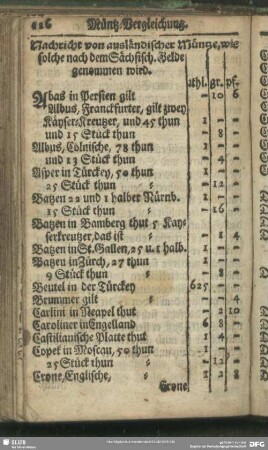 116 Müntz-Vergleichung.
Nachricht von ausländischer Müntze, wie
solche nach dem Sächsisch. Gelde
genommen wird.
rthl. gr. pf.
Abas in Persien gilt - 10 6
Albus, Franckfurter, gilt zwey
Käyser-Kreutzer, und 45 thun 1 - -
und 15 Stück thun - 8 -
Albus, Cölnische, 78 thun 1 - -
und 13 Stück thun - 4 -
Asper in Türckey, 50 thun 1 - -
25 Stück thun - 12 -
Batzen 22 und 1 halber Nürnb. 1 - -
15 Stück thun - 16 -
Batzen in Bamberg thut 5 Kay-
serkreutzer, das ist - 1 4
Batzen in St. Gallen, 25 u. 1 halb. 1 - -
Batzen in Zürch, 27 thun 1 - -
9 Stück thun - 8 -
Beutel in der Türckey 625 - -
Brummer gilt - - 4
Carlini in Neapel thut - 2 10
Caroliner in Engelland 6 8 -
Castilianische Platte thut 1 4 -
Copek in Moscau, 50 thun 1 - -
25 Stück thun - 12 -
Crone, Englische, 1 2 8
Crone,
SLUB
DFG